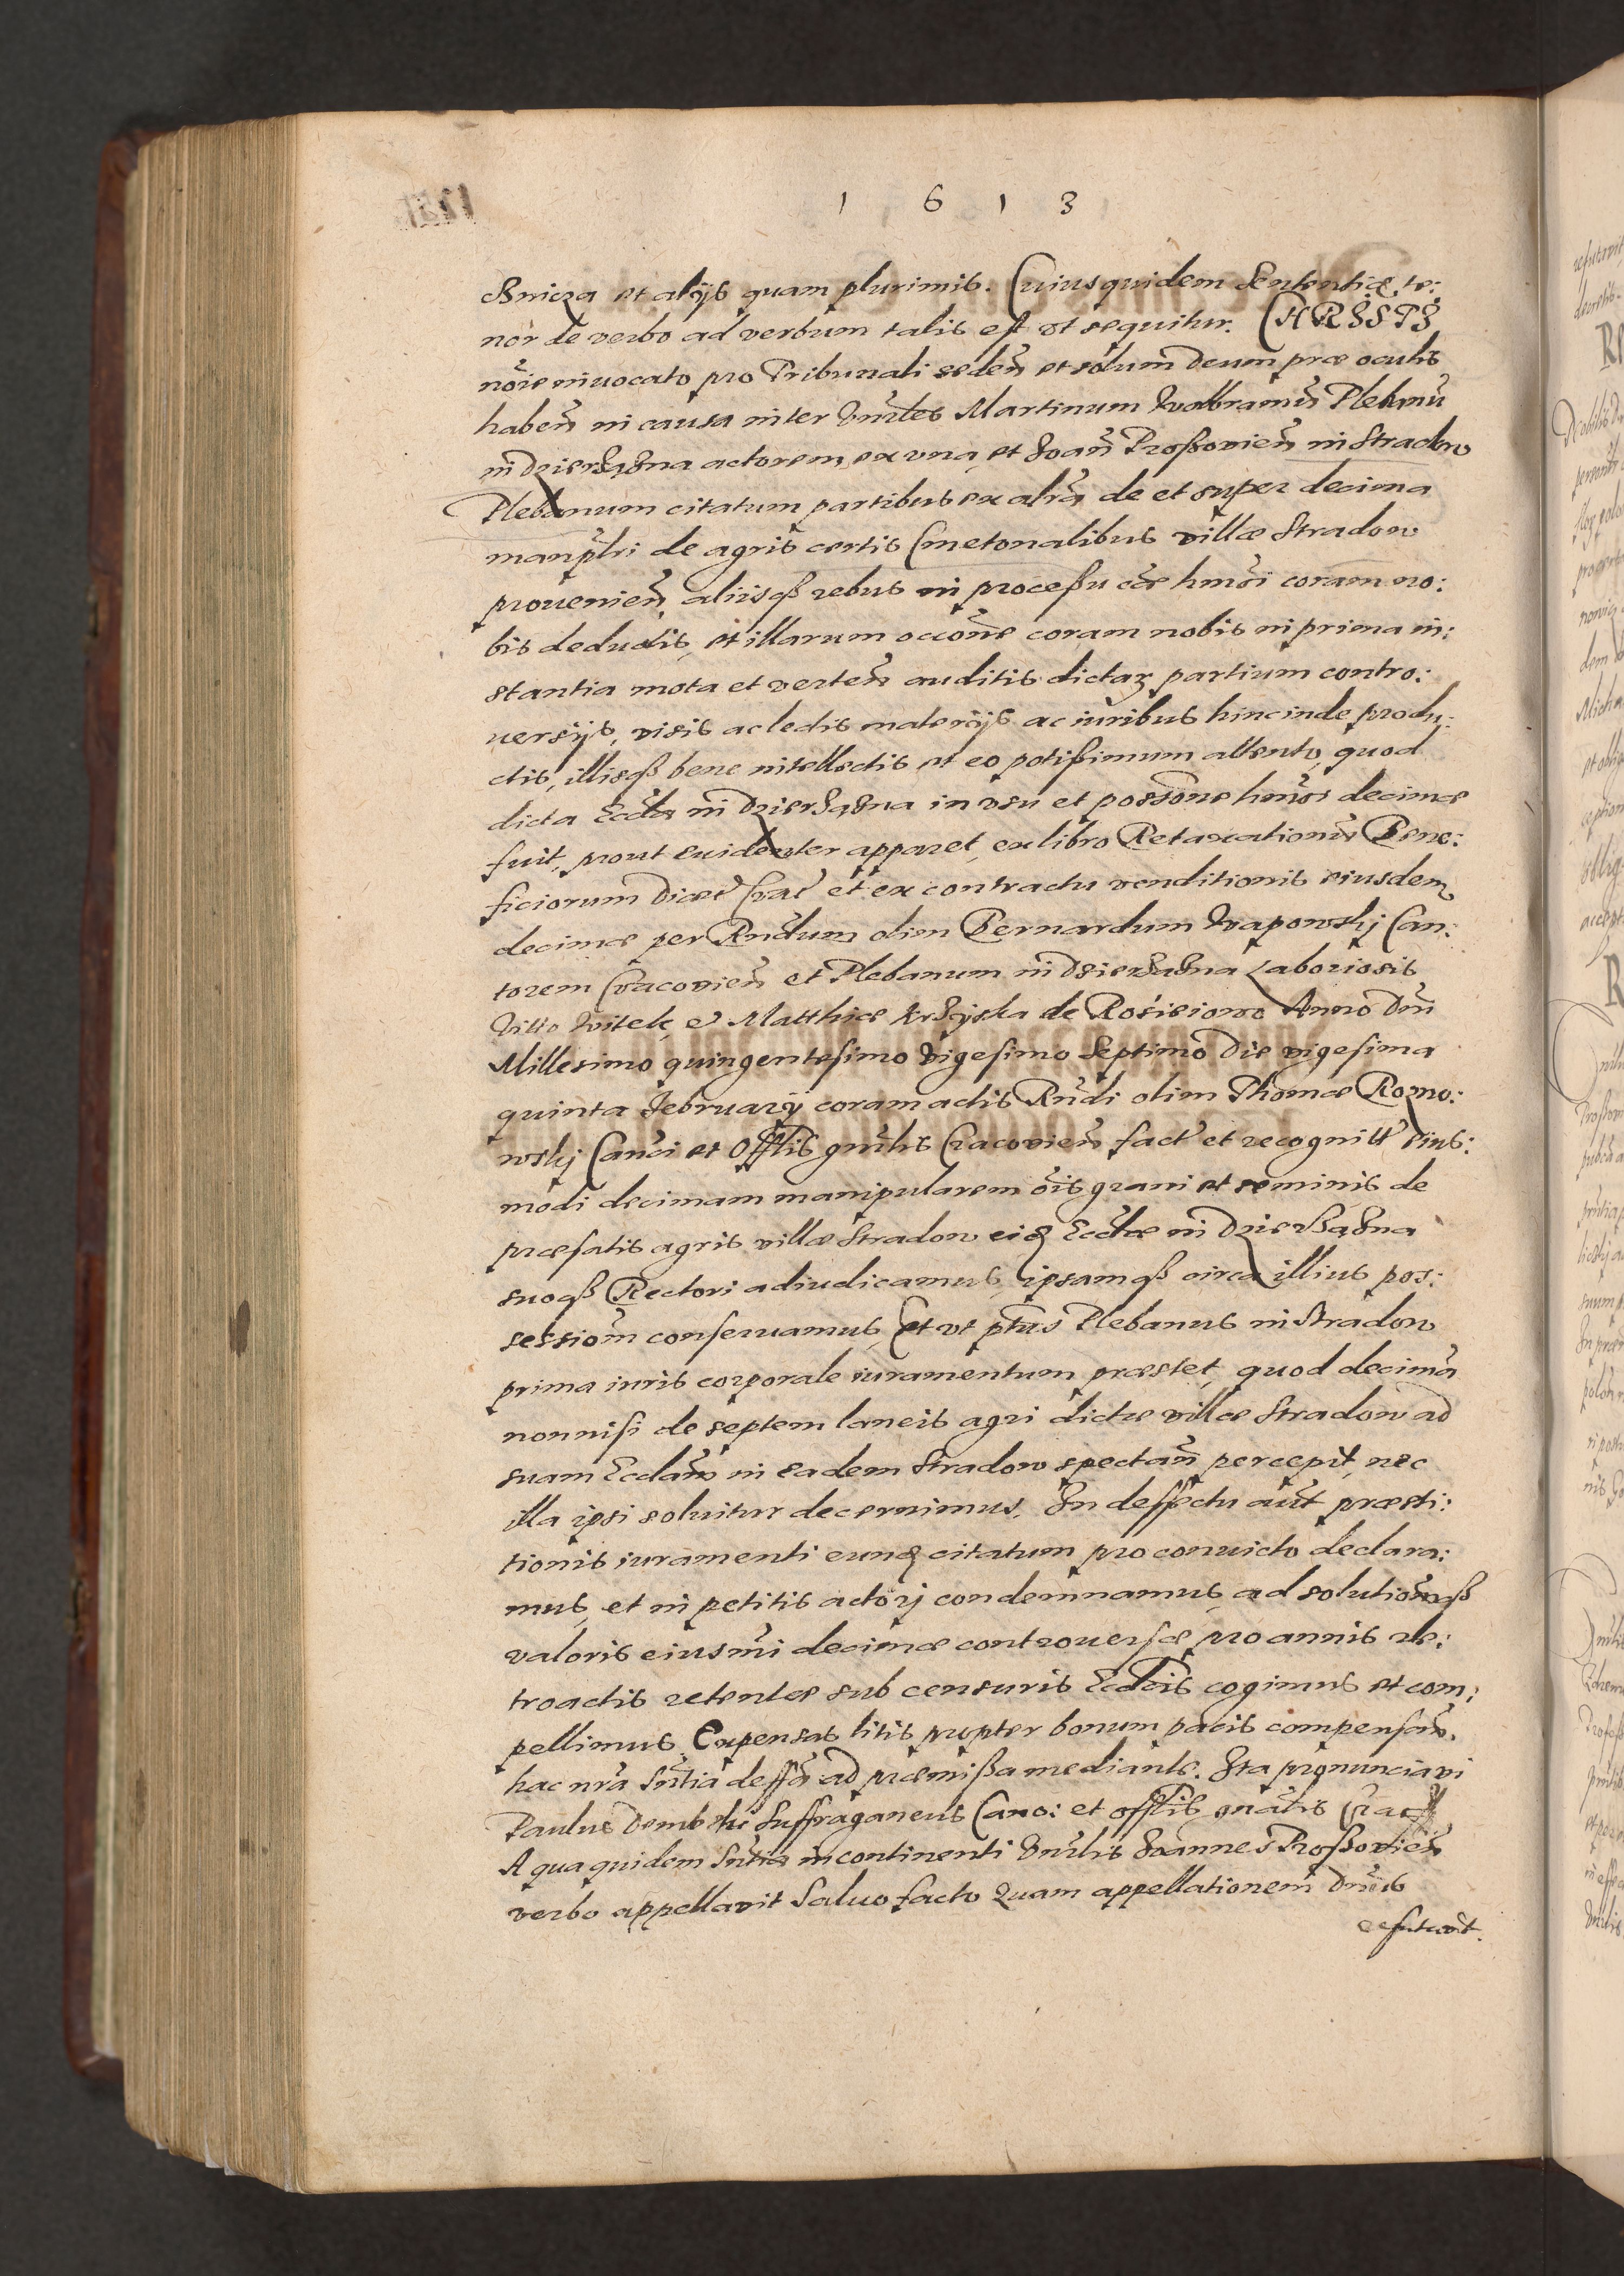 1 6 1 3
et alijs quam plurimis. Cuiusquidem Sententiæ te:
nor de verbo ad verbum talis est vt sequitur. CHRISTI
nōie inuocato pro Tribunali seden̄ et solum Deum præ oculis
haben̄ in causa inter Vnrles Martinum Wolbramū Plebanū
in Dzierżążna actorem ex vna, et Joan̄ Proszovien̄ in Stradow
Plebanum citatum partibus ex altrā de et super decima
manip̄lri de agris certis Cmetonalibus villæ Stradow
prouenien̄, aliisqß rebus in processu cāe hmōi coram no:
bis deductis, et illarum occōne coram nobis in prima in:
stantia mota et verten̄ auditis dictaꝝ partium contro:
uersijs, visis ac lectis materijs ac iuribus hincinde produ:
ctis, illisqß bene intellectis et eo potissimum attento, quod
dicta Eccla in Dzierżążna in vsu et possōne hmōi decimæ
fuit, prout euidenter apparet, ex libro Retaxationū Bene:
ficiorum Diæc Crac et ex contractu venditionis eiusdem
decimæ per Rndum olim Bernardum Wapowskj Can:
torem Cracovien̄ et Plebanum in Dzierżążna Laboriosis
Vitto Witek et Matthiæ de Rosieiowo Anno Dni
Millesimo quingentesimo Vigesimo Septimo Die vigesima
quinta Februarij coram actis Rndi olim Thomæ Rozno:
wskj Canci et Offlis gnrlis Cracovien̄ fact et recognitt eius:
modi decimam manipularem ōis grani et seminis de
præfatis agris villæ Stradow eiꝗ Ecclæ in Dzierżążna
suoqß Rectori adiudicamus, ipsamqß circa illius pos:
sessiōm conseruamus, Et vt ptūs Plebanus in Stradow
prima iuris corporale iuramentum præstet, quod decimā
nonnisi de septem laneis agri dictæ villæ Stradow ad
suam Ecclām in eadem Stradow spectan̄ percepit, nec
illa ipsi soluitur decernimus. In deffectu aūt præsti:
tionis iuramenti eunꝗ citatum pro conuicto declara:
mus, et in petitis actorj condemnamus, ad solutiōmqß
valoris eiusmi decimæ controuersæ pro annis re:
troactis retentæ sub censuris Eccleīs cogimus et com:
pellimus, Expensas litis propter bonum pacis compensan̄.
hac nrā Sntia deffā ad præmissa mediante. Ita pronunciavi
Paulus Dembski Suffraganeus Cano: et offlis gnālis Crac
A qua quidem Sntia incontinenti Vnrlis Joannes Proszovien̄
verbo appellavit Saluo facto Quam appellationem Dnūs
refutavit.